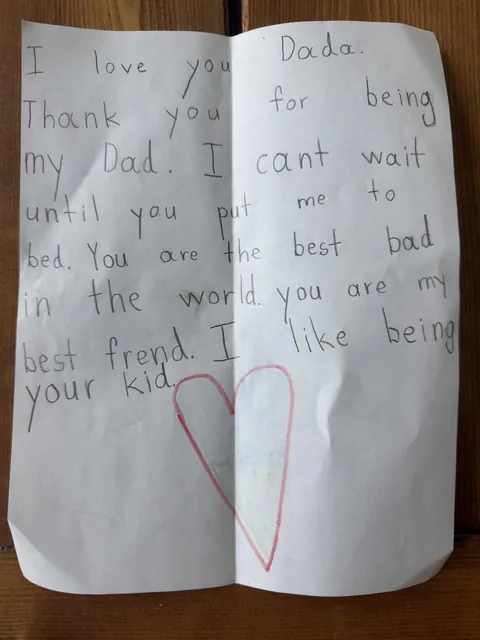 I love you Dada.
Thank you for being
my Dad. I cant wait
until you put me to
bed. You are the best bad
in the world. you are my
best frend. I like being
your kid.